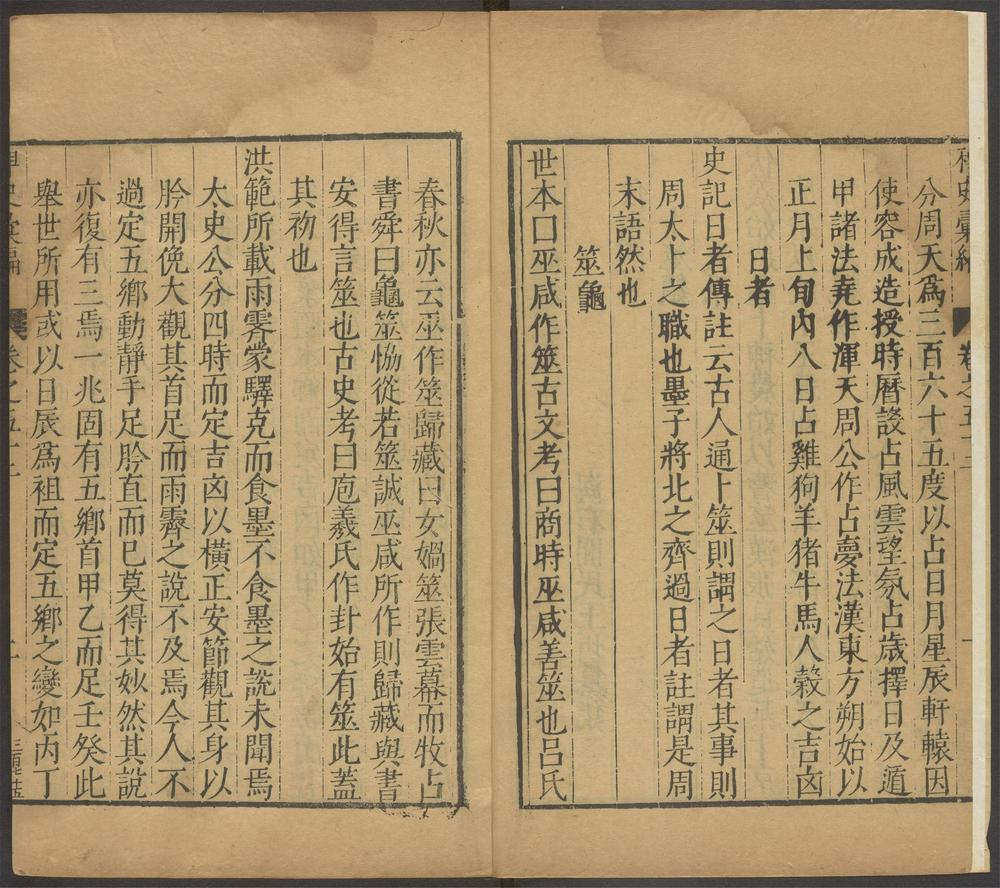 稗史彙編
卷之五十三
分周天爲三百六十五度以占日月星辰軒轅因
使容成造授時曆談占風雲望氛占歲擇日及遁
甲諸法堯作渾天周公作占夢法漢東方朔始以
正月上旬內八日占雞狗羊猪牛馬人穀之吉凶
日者
史記日者傳註云古人通卜筮則謂之日者其事則
周太卜之職也墨子將北之齊過日者註謂是周
末語然也
筮龜
世本曰巫咸作筮古文考曰商時巫咸善筮也呂氏
春秋亦云巫作筮歸藏曰女媧筮張雲幕而牧占
書舜曰龜筮恊從若筮誠巫咸所作則歸藏與書
安得言筮也古史考曰庖羲氏作卦始有筮此蓋
其初也
洪範所載雨霽蒙驛克而食墨不食墨之說未聞焉
太史公分四時而定吉凶以橫正安節觀其身以
肣開俛大觀其首足而雨霽之說不及焉今人不
過定五鄉動靜手足肣直而已莫得其妙然其說
亦復有三焉一兆固有五鄉首甲乙而足壬癸此
舉世所用或以日辰爲祖而定五鄉之變如丙丁
史彙編
卷之五十三